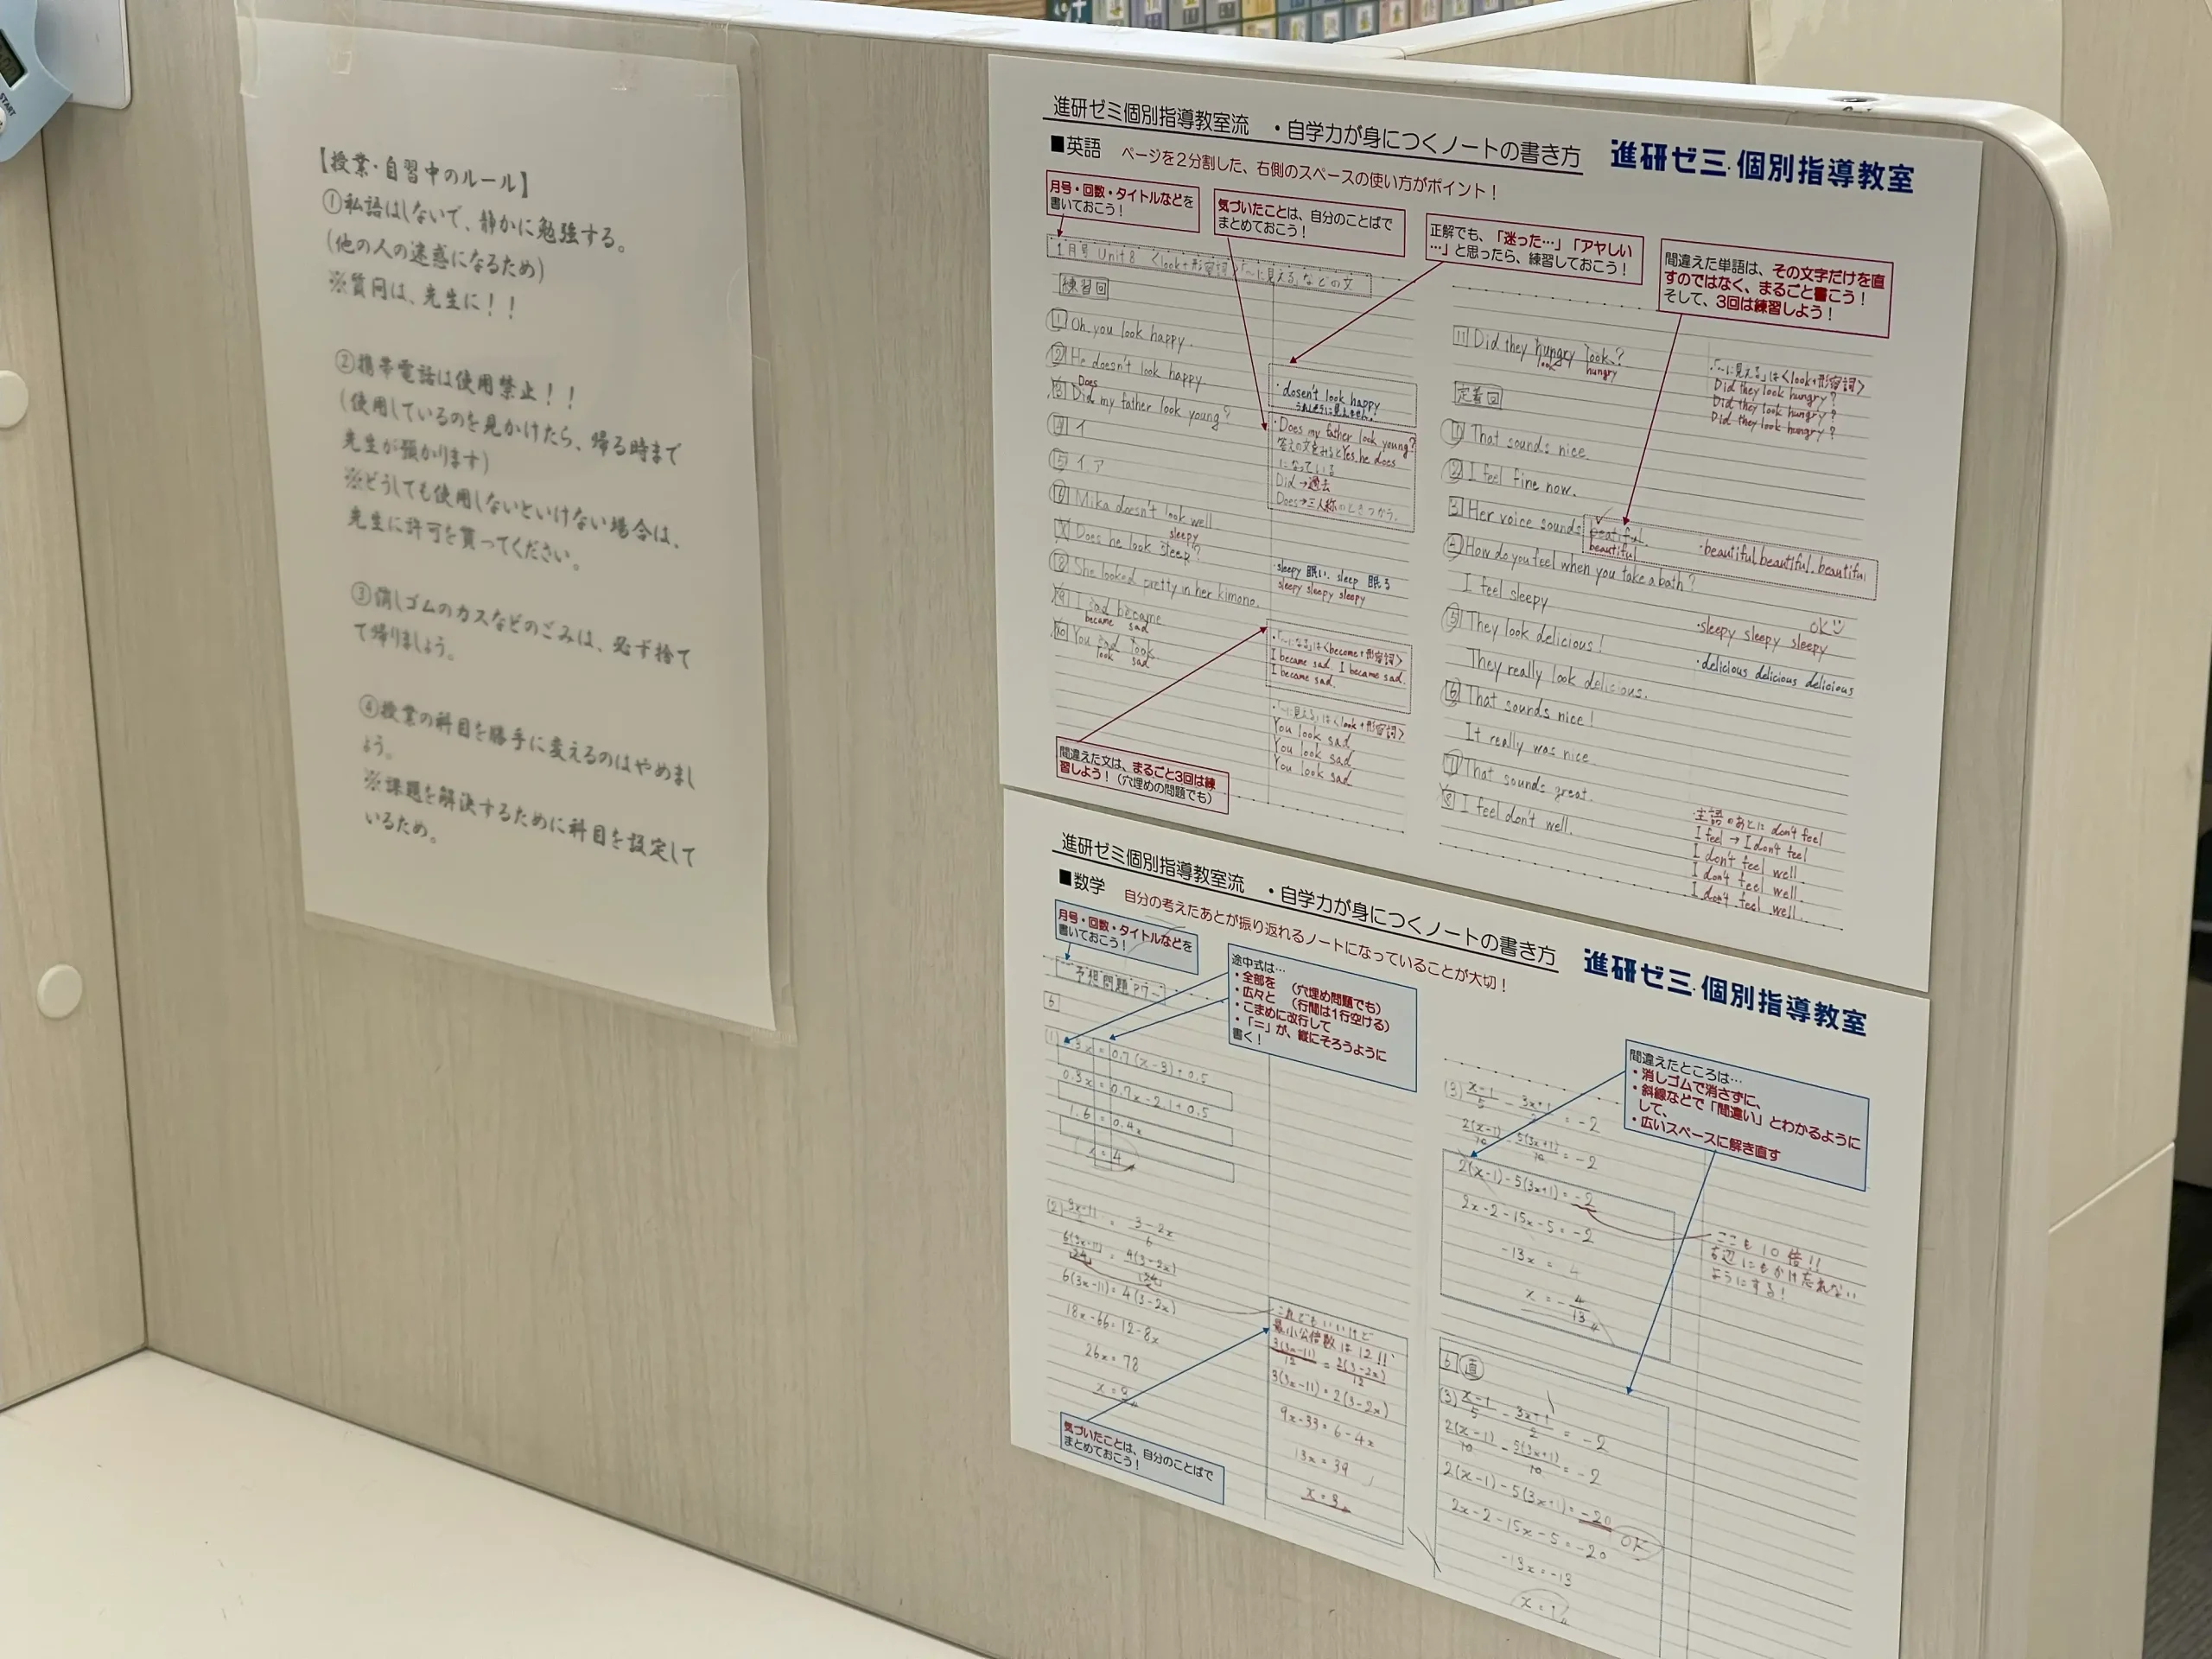 【授業・自習中のルール】
①私語はしないで、静かに勉強する。
(他の人の迷惑になるため)
※質問は、先生に！！
②携帯電話は使用禁止！！
(使用しているのを見かけたら、帰る時まで
先生が預かります)
※どうしても使用しないといけない場合は、
先生に許可を貰ってください。
③消しゴムのカスなどのごみは、必ず捨て
て帰りましょう。
④授業の科目を勝手に変えるのはやめまし
ょう。
※課題を解決するために科目を設定して
いるため。
進研ゼミ個別指導教室流 ・自学力が身につくノートの書き方
進研ゼミ個別指導教室
■英語 ページを2分割した、右側のスペースの使い方がポイント！
月号・回数・タイトルなどを
書いておこう！
気づいたことは、自分のことばで
まとめておこう！
正解でも、「迷った…」「アヤしい
…」と思ったら、練習しておこう！
間違えた単語は、その文字だけを直
すのではなく、まるごと書こう！
そして、3回は練習しよう！
1月号 Unit 8 〈look+形容詞〉「～に見える」などの文
練習回
1 Oh, you look happy.
2 He doesn't look happy.
Does
3 Did my father look young?
4 イ
5 イ, ア
6 Mika doesn't look well.
sleepy
7 Does he look sleep?
8 She looked pretty in her kimono.
9 I sad became
became sad
10 You sad look
look sad
・dosen't look happy
・Does my father look young?
答えの文をみるとYes, he does
になっている
Did→過去
Does→三人称のときつかう。
・sleepy 眠い. sleep 眠る
sleepy sleepy sleepy
・「～になる」は〈become+形容詞〉
I became sad. I became sad.
I became sad.
・「～に見える」は〈look+形容詞〉
You look sad
You look sad
You look sad
間違えた文は、まるごと3回は練
習しよう！（穴埋めの問題でも）
11 Did they hungry look?
look hungry
・「～に見える」は〈look+形容詞〉
Did they look hungry?
Did they look hungry?
Did they look hungry?
定着回
1 That sounds nice
2 I feel fine now.
3 Her voice sounds beatiful.
beautiful
・beautiful beautiful. beautiful
4 How do you feel when you take a bath?
I feel sleepy
OK
・sleepy sleepy sleepy
5 They look delicious!
They really look delicious.
・delicious delicious delicious
6 That sounds nice!
It really was nice
7 That sounds great.
8 I feel don't well.
主語のあとに don't feel
I feel → I don't feel
I don't feel well.
I don't feel well.
I don't feel well.
進研ゼミ個別指導教室流 ・自学力が身につくノートの書き方
進研ゼミ個別指導教室
■数学 自分の考えたあとが振り返れるノートになっていることが大切！
月号・回数・タイトルなどを
書いておこう！
途中式は…
・全部を （穴埋め問題でも）
・広々と （行間は1行空ける）
・こまめに改行して
・「＝」が、縦にそろうように
書く！
間違えたところは…
・消しゴムで消さずに、
・斜線などで「間違い」とわかるように
して、
・広いスペースに解き直す
予想問題
6
0.3x = 0.7x - 2.1 + 0.5
1.6 = 0.4x
x = 4
6(3x-11) = 4(3-2x)
18x-66 = 12-8x
26x = 78
これでもいいけど
最小公倍数は12!!
3(3x-11)/12 = 2(3-2x)/12
3(3x-11) = 2(3-2x)
9x-33 = 6-4x
13x = 39
x = 3
気づいたことは、自分のことばで
まとめておこう！
(3) x-1/5 - 3x+1/2 = -2
2(x-1)/10 - 5(3x+1)/10 = -2
2(x-1)-5(3x+1) = -2
2x-2-15x-5 = -2
-13x = 4
x = -4/13
ここも10倍!!
右辺にもかけ忘れない
ようにする!
6 直
(3) x-1/5 - 3x+1/2 = -2
2(x-1)/10 - 5(3x+1)/10 = -2
2(x-1)-5(3x+1) = -20
2x-2-15x-5 = -20
OK
-13x = -13
x = 1
START